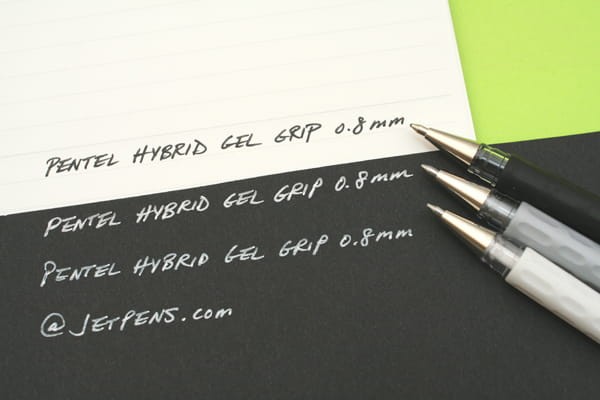 PENTEL HYBRID GEL GRIP 0.8mm
PENTEL HYBRID GEL GRIP 0.8mm
PENTEL HYBRID GEL GRIP 0.8mm
@JETPENS.com